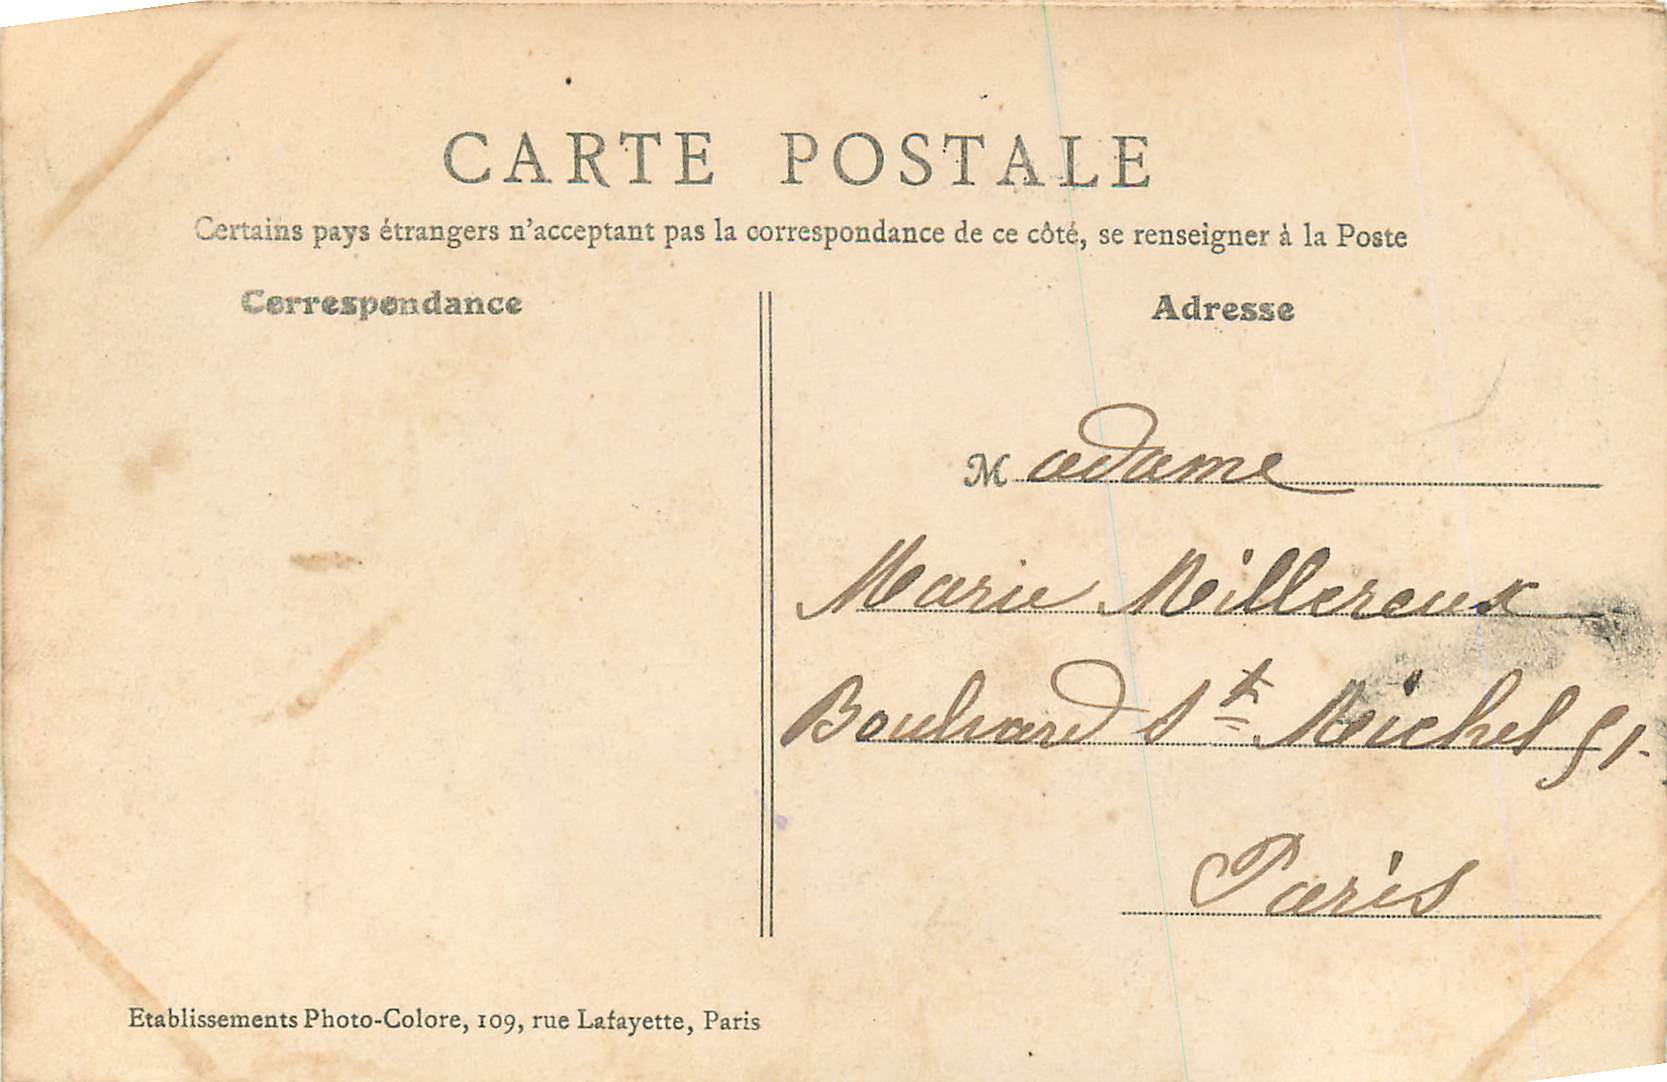 CARTE POSTALE
Certains pays étrangers n'acceptant pas la correspondance de ce côté, se renseigner à la Poste
Correspondance
Adresse
Madame
Marie Millereux
Boulvard St Michel 51.
Paris
Etablissements Photo-Colore, 109, rue Lafayette, Paris